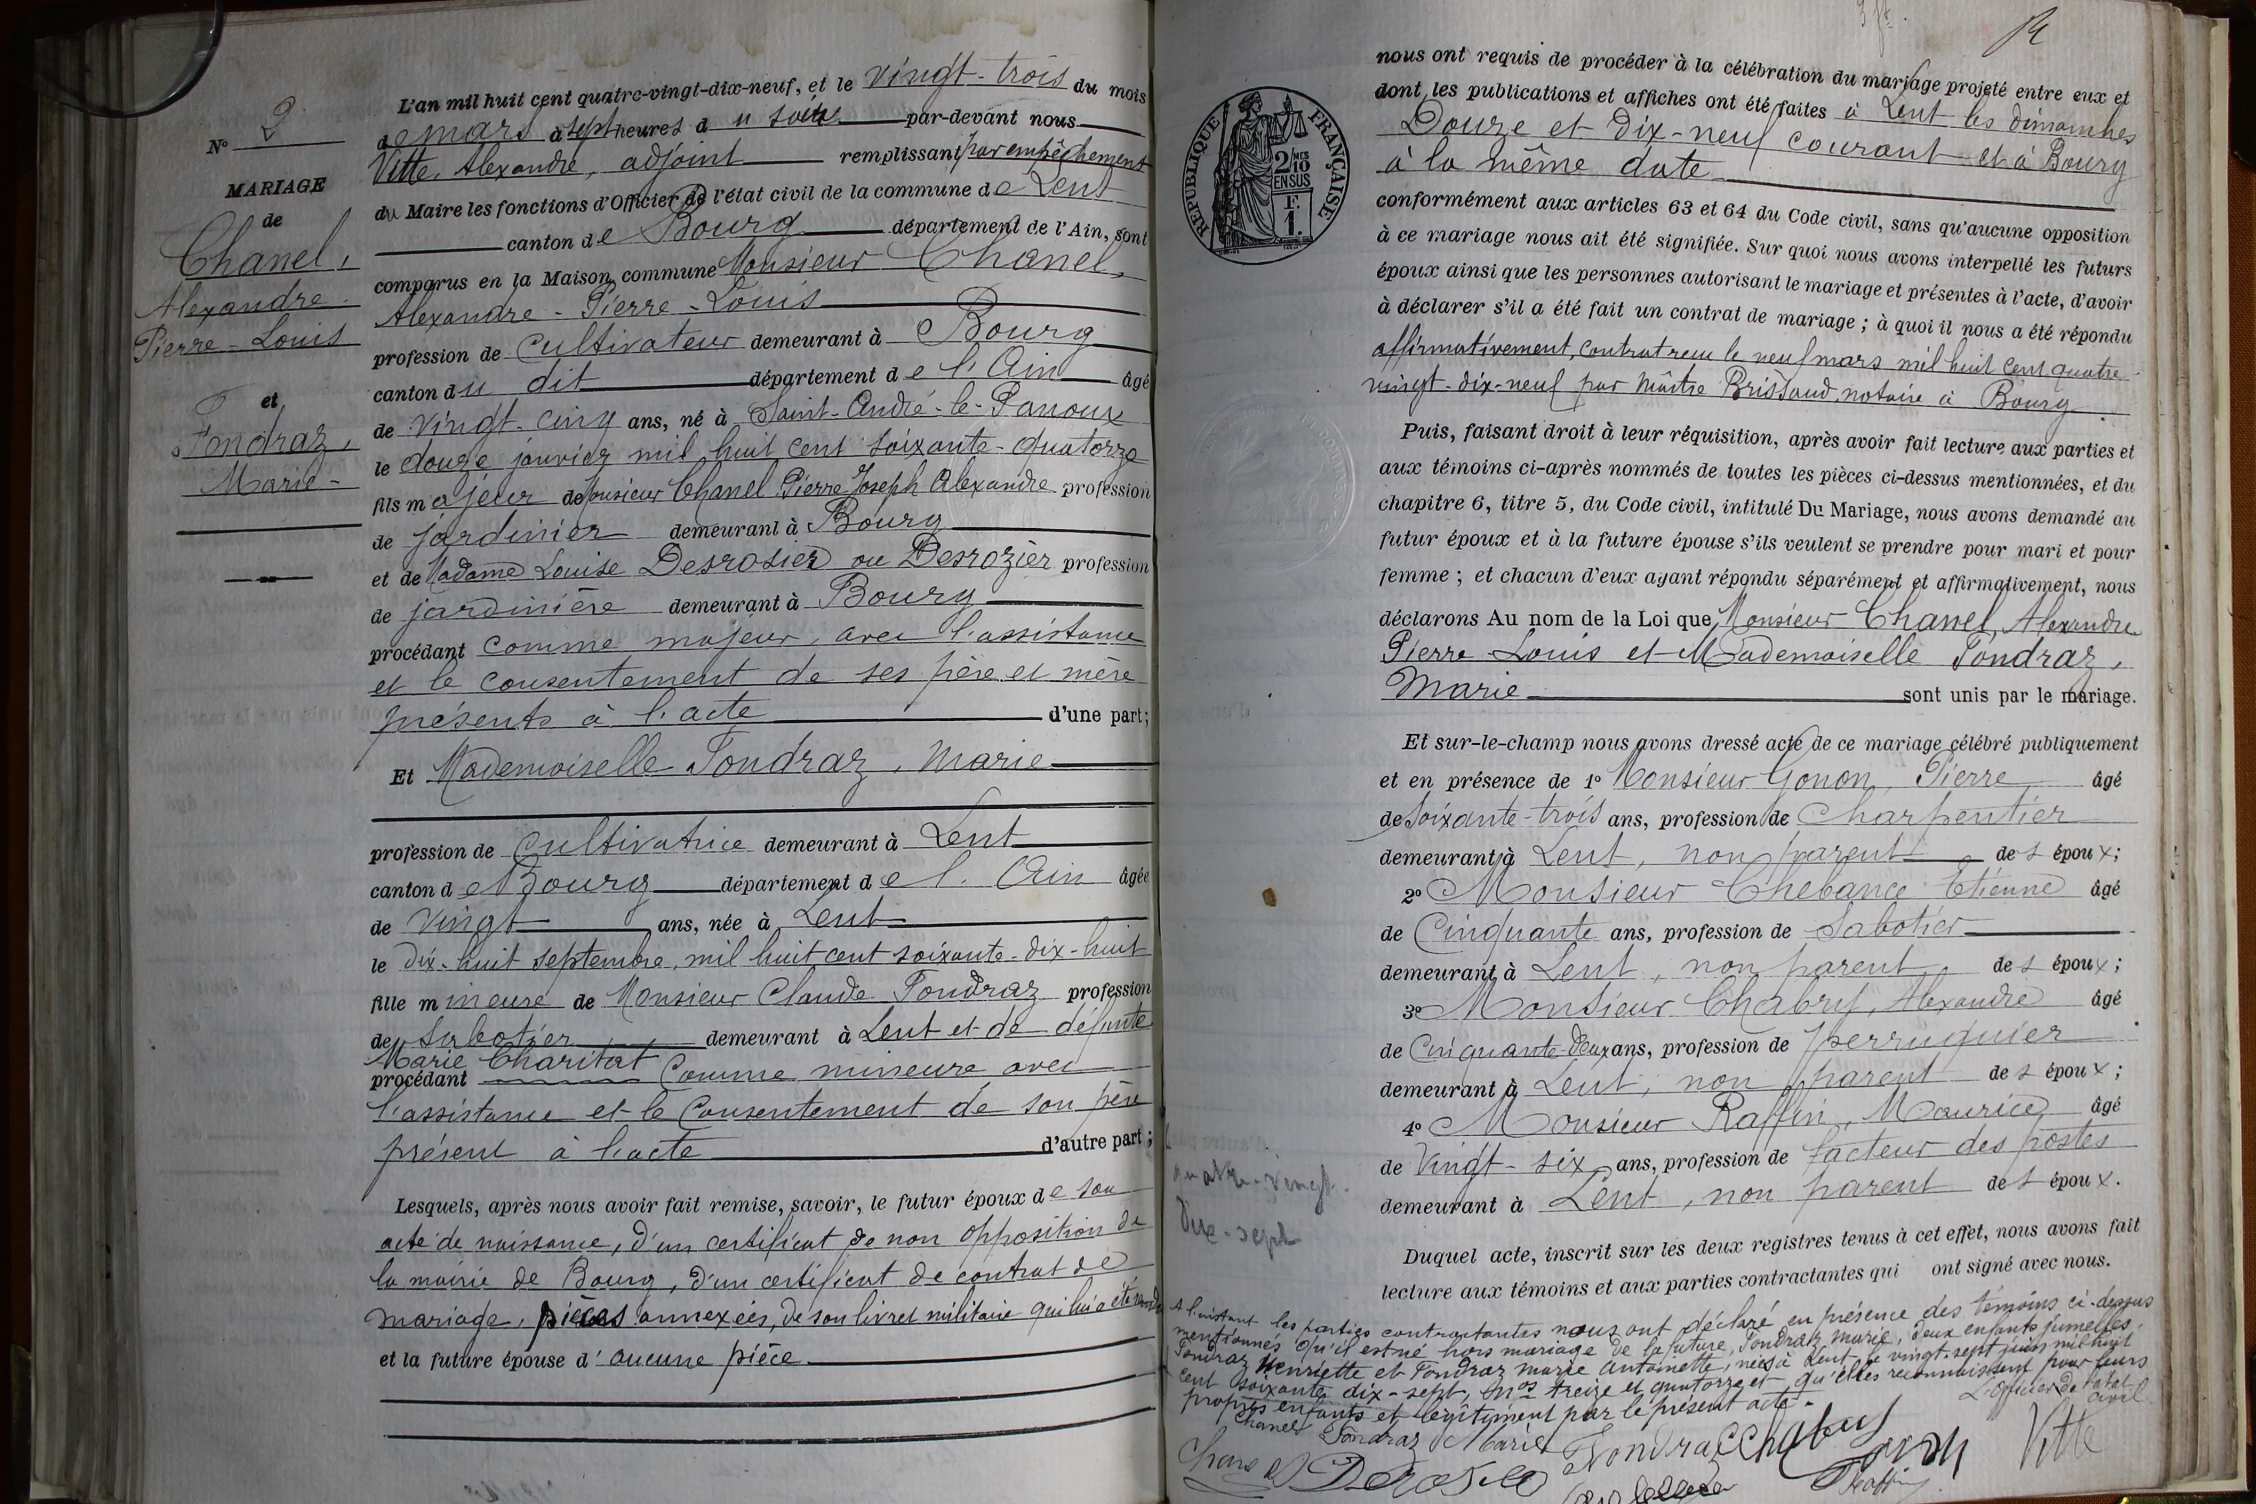 N° 2
MARIAGE
de
Chanel,
Alexandre
Pierre-Louis
et
Fondraz,
Marie
L'an mil huit cent quatre-vingt-dix-neuf, et le vingt-trois du mois
de mars à sept heures du soir par-devant nous
Vitte, Alexandre, adjoint remplissant par empêchement
du Maire les fonctions d'Officier de l'état civil de la commune de Lent
canton de Bourg département de l'Ain, sont
comparus en la Maison commune Monsieur Chanel,
Alexandre-Pierre-Louis
profession de cultivateur demeurant à Bourg
canton du dit département de l'Ain âgé
de vingt-cinq ans, né à Saint-André-le-Panoux
le douze janvier mil huit cent soixante-quatorze
fils majeur de Monsieur Chanel Pierre Joseph Alexandre profession
de jardinier demeurant à Bourg
et de Madame Louise Desrosier ou Desrozier profession
de jardinière demeurant à Bourg
procédant comme majeur, avec l'assistance
et le consentement de ses père et mère
présents à l'acte d'une part;
Et Mademoiselle Fondraz, Marie
profession de cultivatrice demeurant à Lent
canton de Bourg département de l'Ain âgée
de vingt ans, née à Lent
le dix-huit septembre, mil huit cent soixante-dix-huit
fille mineure de Monsieur Claude Fondraz profession
de sabotier demeurant à Lent et de défunte
Marie Charitat
procédant comme mineure avec
l'assistance et le consentement de son père
présent à l'acte d'autre part;
Lesquels, après nous avoir fait remise, savoir, le futur époux de son
acte de naissance, d'un certificat de non opposition de
la mairie de Bourg, d'un certificat de contrat de
mariage, pièces annexées, de son livret militaire qui lui a été rendu
et la future épouse d'aucune pièce
REPUBLIQUE FRANÇAISE
2/10 MES
EN SUS
F.
1.
nous ont requis de procéder à la célébration du mariage projeté entre eux et
dont les publications et affiches ont été faites à Lent les dimanches
Douze et dix-neuf courant et à Bourg
à la même date
conformément aux articles 63 et 64 du Code civil, sans qu'aucune opposition
à ce mariage nous ait été signifiée. Sur quoi nous avons interpellé les futurs
époux ainsi que les personnes autorisant le mariage et présentes à l'acte, d'avoir
à déclarer s'il a été fait un contrat de mariage; à quoi il nous a été répondu
affirmativement, contrat reçu le neuf mars mil huit cent quatre
vingt-dix-neuf par Maître Brissaud, notaire à Bourg.
Puis, faisant droit à leur réquisition, après avoir fait lecture aux parties et
aux témoins ci-après nommés de toutes les pièces ci-dessus mentionnées, et du
chapitre 6, titre 5, du Code civil, intitulé Du Mariage, nous avons demandé au
futur époux et à la future épouse s'ils veulent se prendre pour mari et pour
femme; et chacun d'eux ayant répondu séparément et affirmativement, nous
déclarons Au nom de la Loi que Monsieur Chanel, Alexandre
Pierre Louis et Mademoiselle Fondraz,
Marie sont unis par le mariage.
Et sur-le-champ nous avons dressé acte de ce mariage célébré publiquement
et en présence de 1° Monsieur Gonon, Pierre âgé
de soixante-trois ans, profession de charpentier
demeurant à Lent, non parent des époux;
2° Monsieur Chebance Etienne âgé
de Cinquante ans, profession de Sabotier
demeurant à Lent, non parent des époux;
3° Monsieur Chabry, Alexandre âgé
de Cinquante-deux ans, profession de perruquier
demeurant à Lent, non parent des époux;
4° Monsieur Raffin, Maurice âgé
de Vingt-six ans, profession de facteur des postes
demeurant à Lent, non parent des époux.
Duquel acte, inscrit sur les deux registres tenus à cet effet, nous avons fait
lecture aux témoins et aux parties contractantes qui ont signé avec nous.
quatre-vingt-
dix-sept
A l'instant les parties contractantes nous ont déclaré en présence des témoins ci-dessus
mentionnés qu'il est né hors mariage de la future, Fondraz Marie, deux enfants jumelles,
Fondraz Henriette et Fondraz Marie Antoinette, nées à Lent le vingt-sept juin mil huit
cent soixante dix-sept, Nos treize et quatorze et qu'elles reconnaissent pour leurs
propres enfants et légitiment par le présent acte.
L'officier de l'état
civil
Chanel Fondraz Marie Fondraz Chabry
Vitte
Chanel Derosier Gonon
Raffin